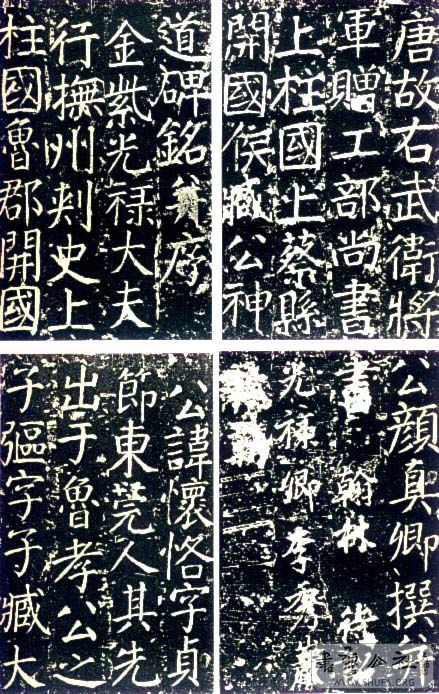 唐故右武衛將
軍贈工部尚書
上柱國上蔡縣
開國侯臧公神
道碑銘并序
金紫光祿大夫
行撫州刺史上
柱國魯郡開國
公顏真卿撰并
書 翰林待
光祿卿李秀
公諱懷恪字貞
節東莞人其先
出于魯孝公之
子彄字子臧大
WWW.SHUFA.ORG